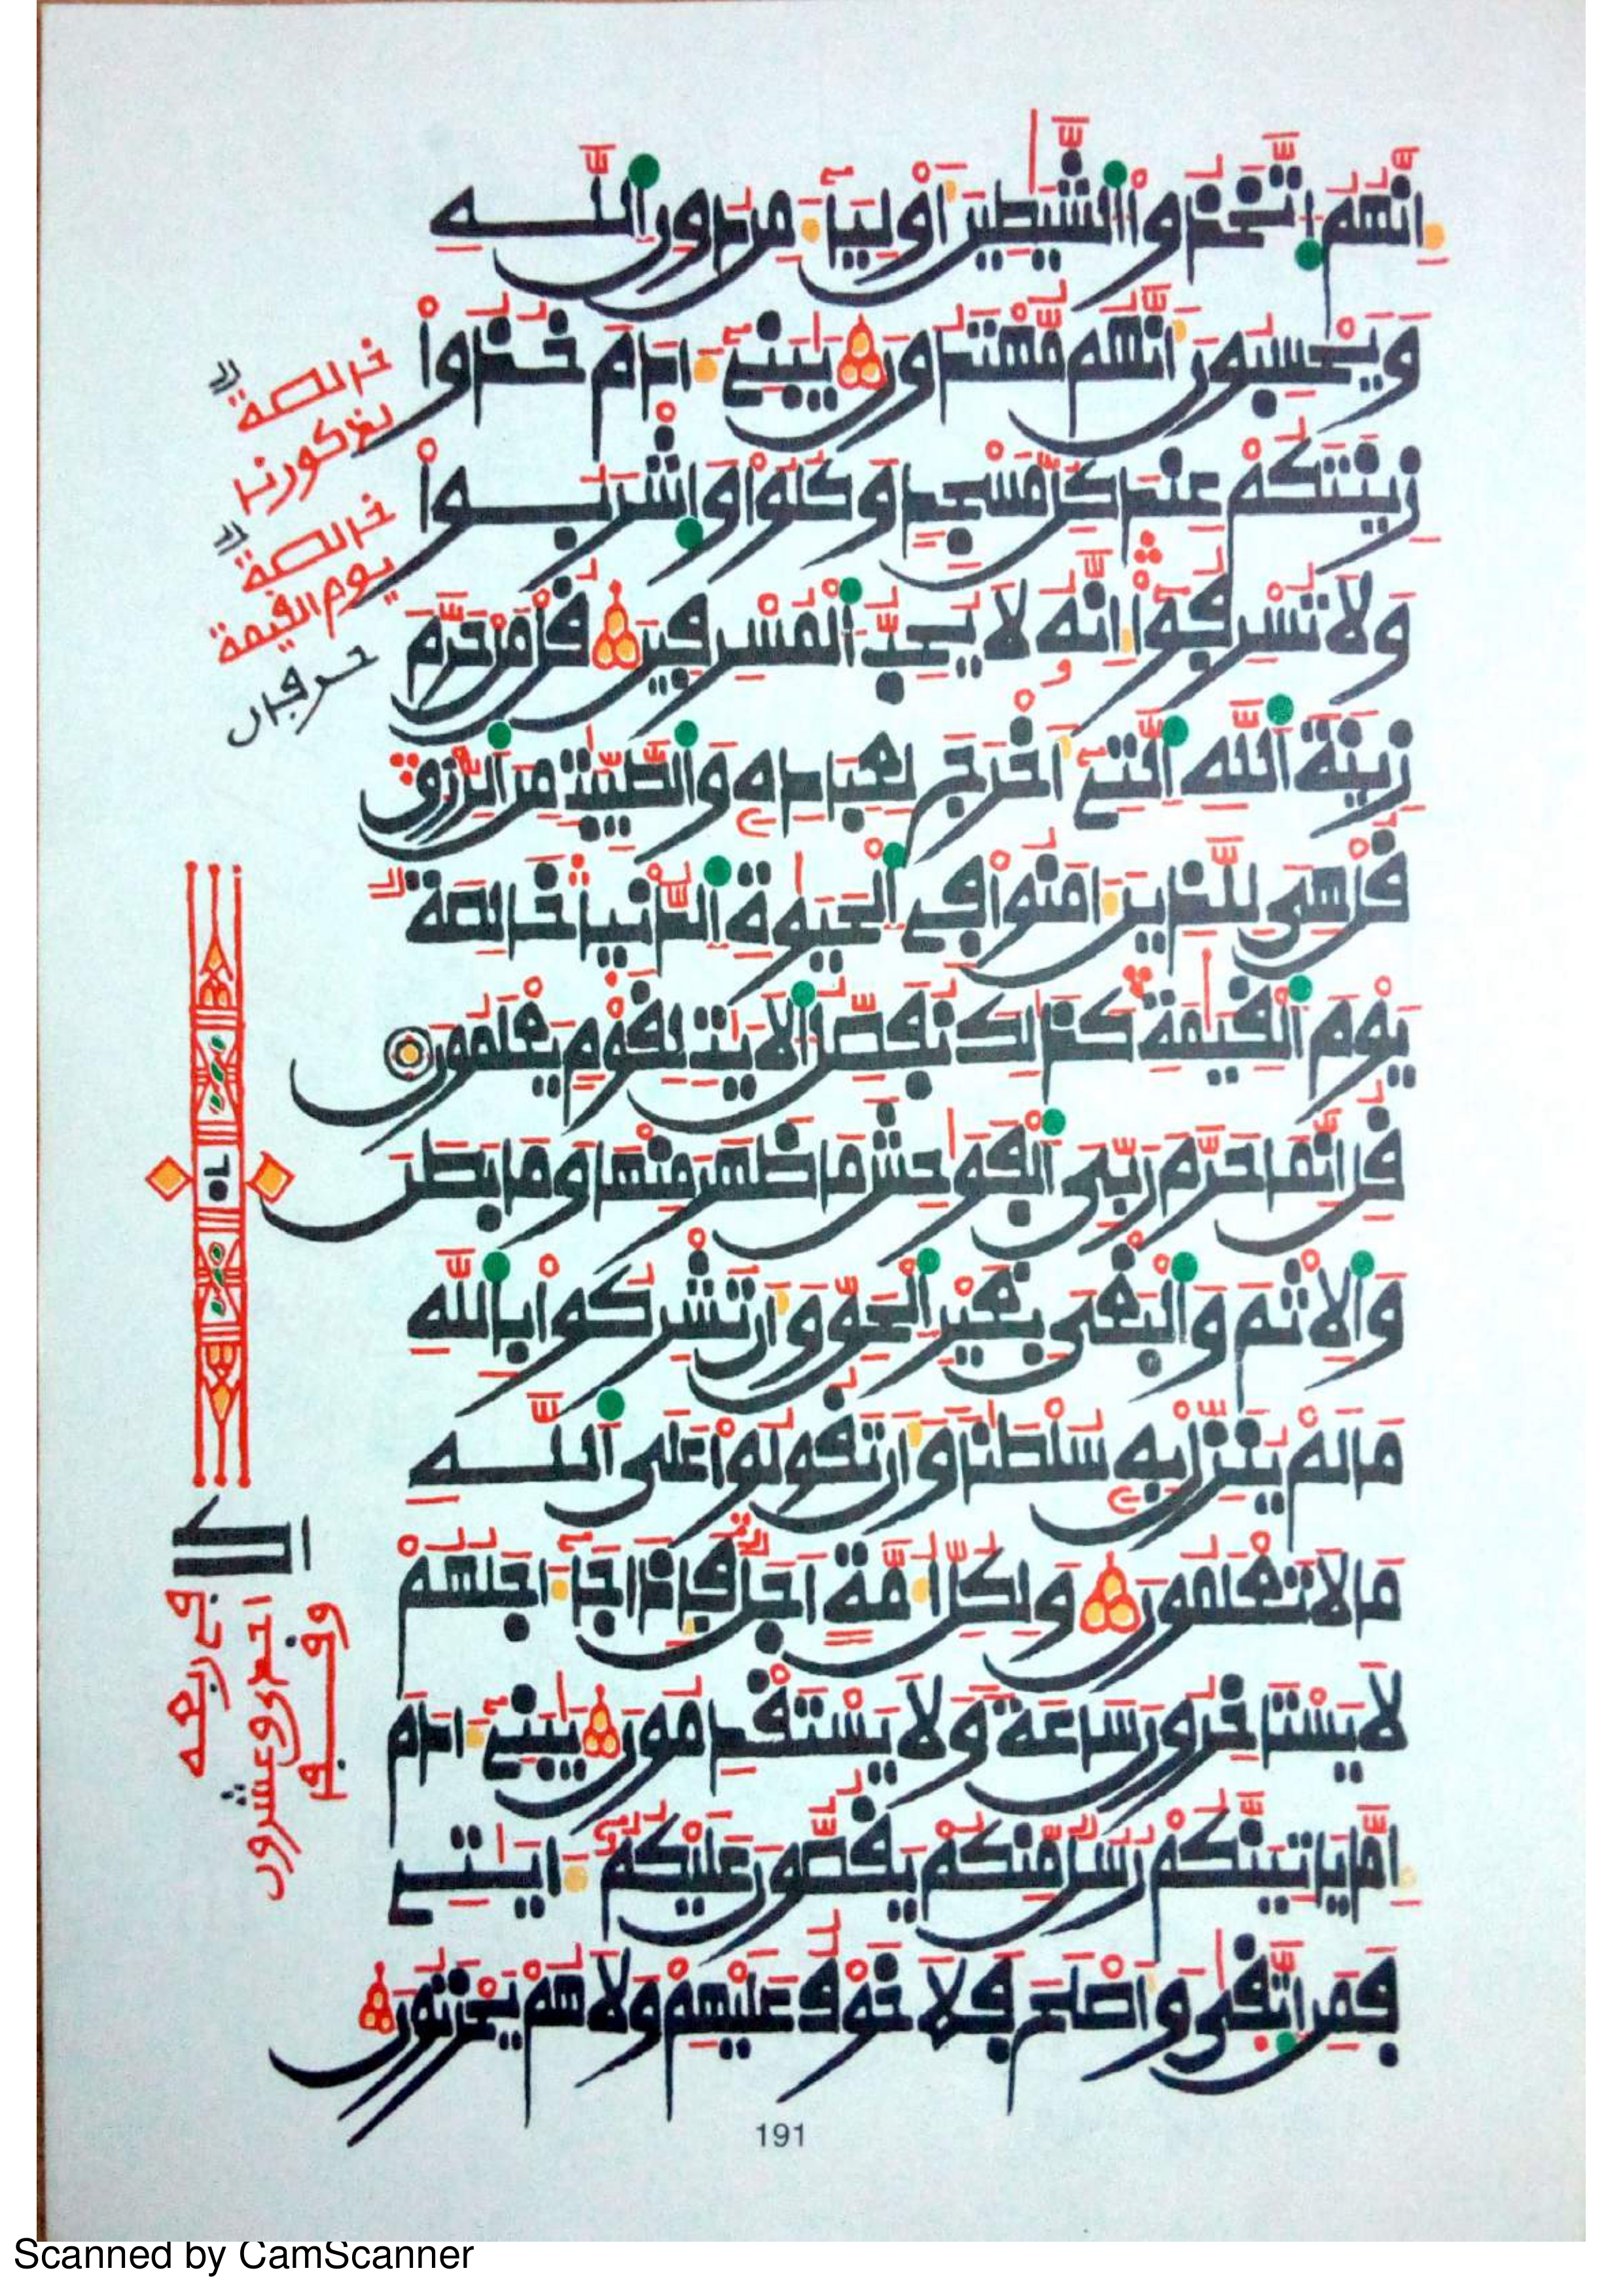 اِنَّهُمُ اتَّخَذُواْ الشَّيَٰطِينَ أَوْلِيَآءَ مِن دُونِ اللَّهِ
وَيَحْسِبُونَ أَنَّهُم مُّهْتَدُونَ يَٰبَنِےٓ ءَادَمَ خُذُواْ
زِينَتَكُمْ عِندَ كُلِّ مَسْجِدٍ وَكُلُواْ وَاشْرَبُواْ
وَلَا تُسْرِفُوٓاْ إِنَّهُۥ لَا يُحِبُّ الْمُسْرِفِينَ قُلْ مَنْ حَرَّمَ
زِينَةَ اللَّهِ الَّتِےٓ أَخْرَجَ لِعِبَادِهِۦ وَالطَّيِّبَٰتِ مِنَ الرِّزْقِ
قُلْ هِىَ لِلَّذِينَ ءَامَنُواْ فِے الْحَيَوٰةِ الدُّنْيَا خَالِصَةٌ
يَوْمَ الْقِيَٰمَةِ كَذَٰلِكَ نُفَصِّلُ الْأَيَٰتِ لِقَوْمٍ يَعْلَمُونَ
قُلْ إِنَّمَا حَرَّمَ رَبِّىَ الْفَوَٰحِشَ مَا ظَهَرَ مِنْهَا وَمَا بَطَنَ
وَالْإِثْمَ وَالْبَغْىَ بِغَيْرِ الْحَقِّ وَأَن تُشْرِكُواْ بِاللَّهِ
مَا لَمْ يُنَزِّلْ بِهِۦ سُلْطَٰنًا وَأَن تَقُولُواْ عَلَى اللَّهِ
مَا لَا تَعْلَمُونَ وَلِكُلِّ أُمَّةٍ أَجَلٌ فَإِذَا جَآءَ اجَلُهُمْ
لَا يَسْتَأْخِرُونَ سَاعَةً وَلَا يَسْتَقْدِمُونَ يَٰبَنِےٓ ءَادَمَ
إِمَّا يَأْتِيَنَّكُمْ رُسُلٌ مِّنكُمْ يَقُصُّونَ عَلَيْكُمُۥٓ ءَايَٰتِے
فَمَنِ اتَّقَىٰ وَأَصْلَحَ فَلَا خَوْفٌ عَلَيْهِمْ وَلَا هُمْ يَحْزَنُونَ
خالصة
خالصة
يوم القيمة
احد وعشرون
191
Scanned by CamScanner